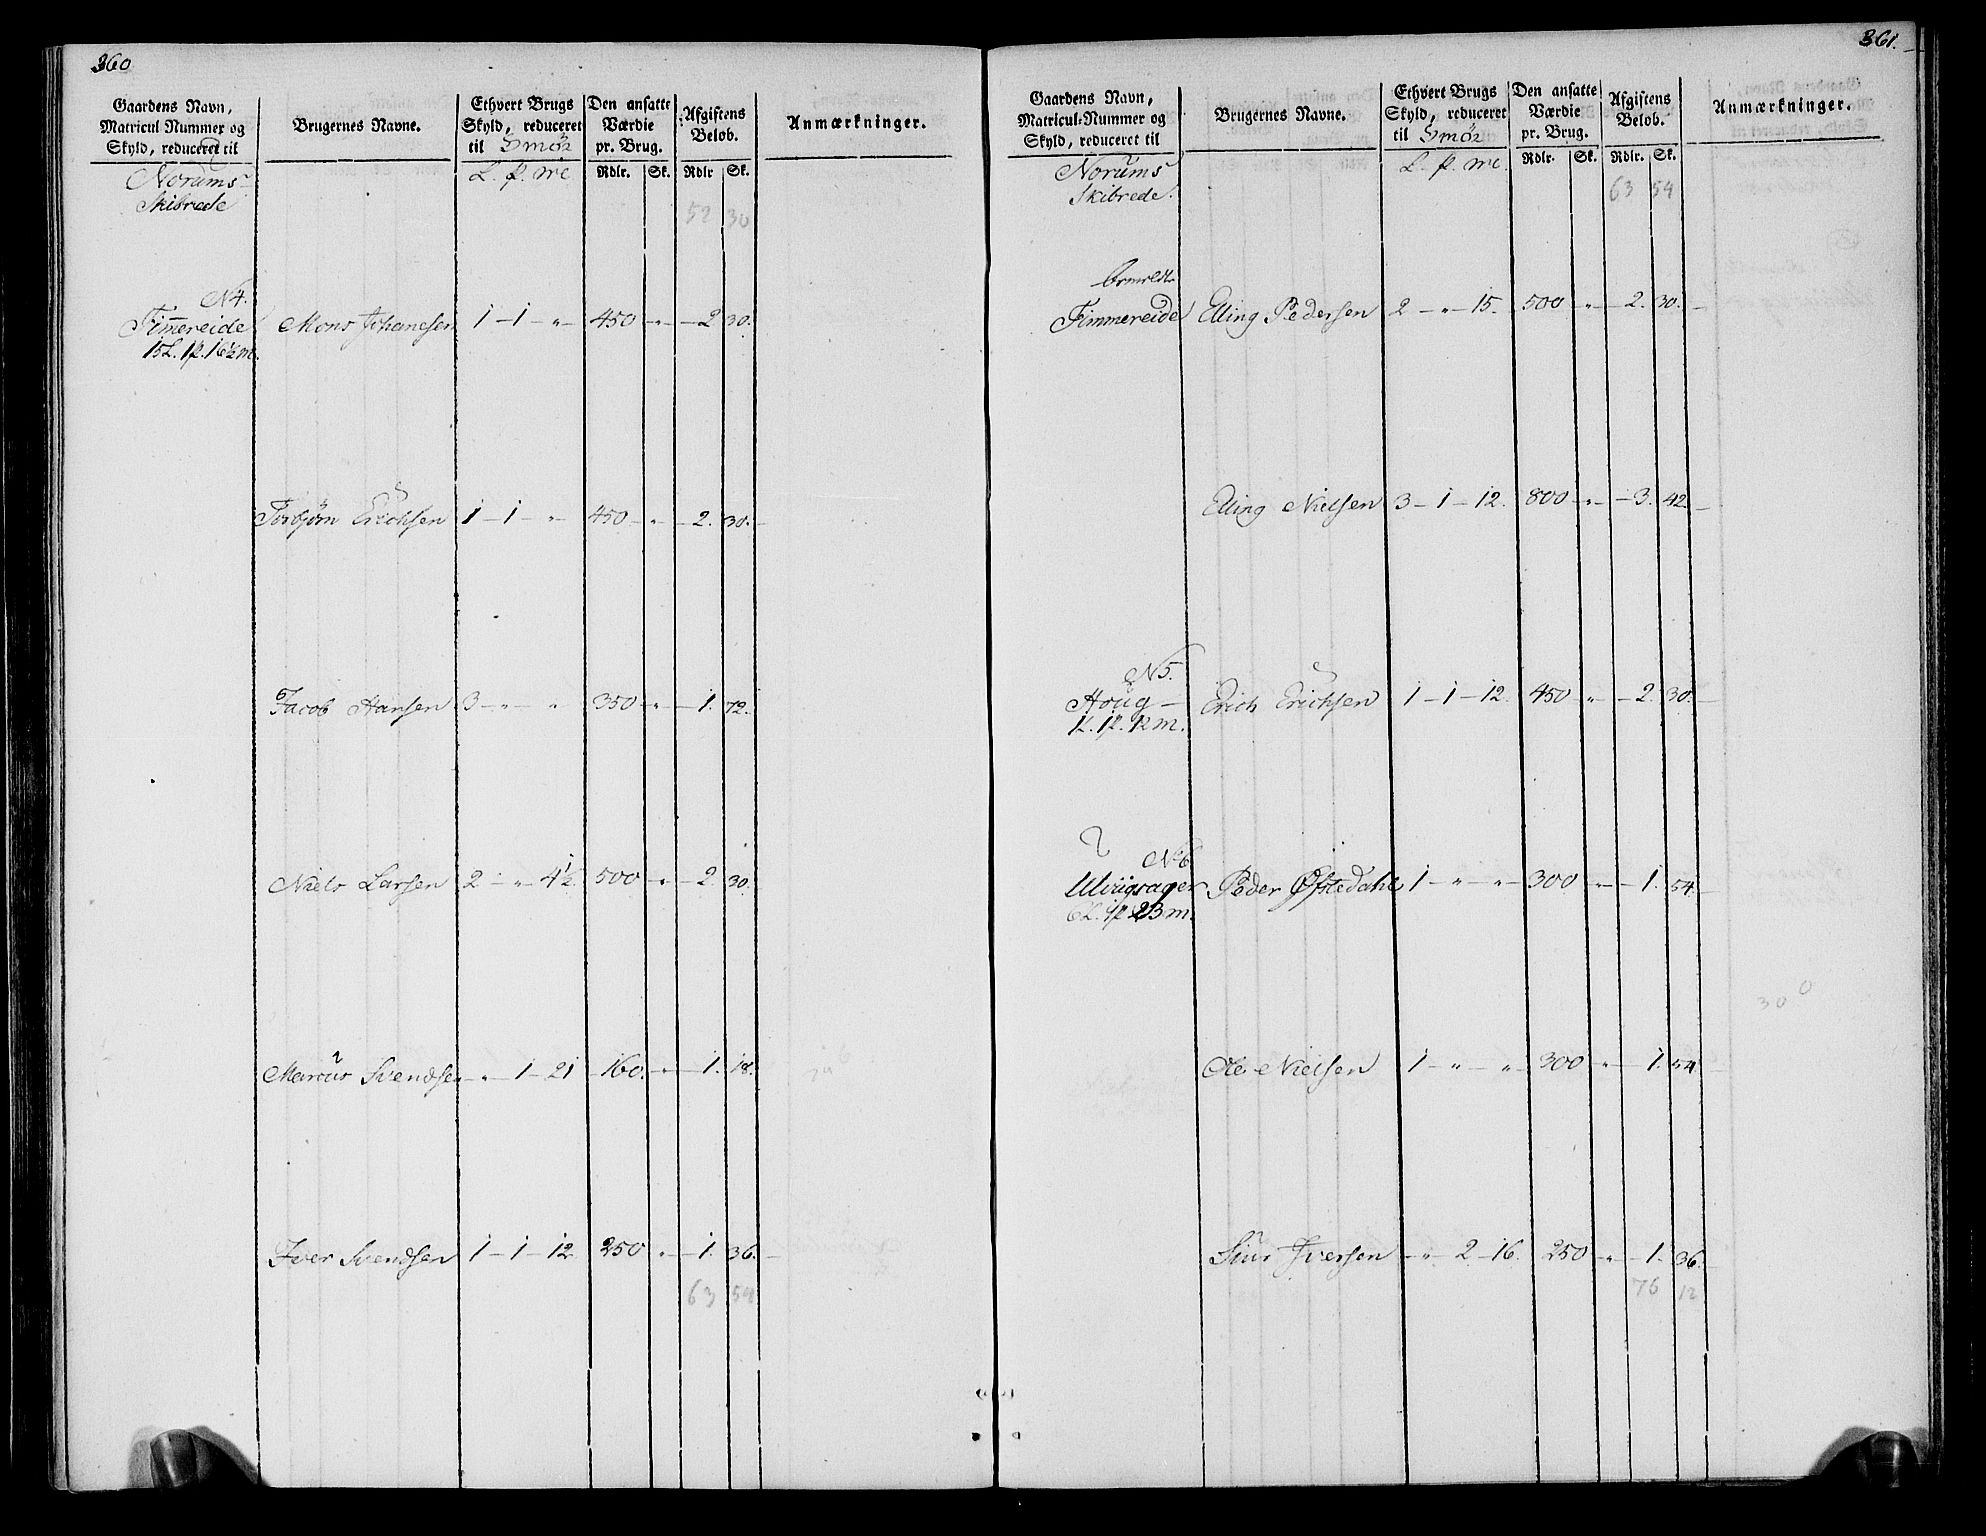 360
Gaardens Navn,
Matricul Nummer og
Skyld, reduceret til
Brugernes Navne.
Ethvert Brugs
Skyld, reduceret
til Smör
Den ansatte
Værdie
pr. Brug.
Afgiftens
Belob.
Anmærkninger.
L. p. mc
Rdlr. Sk. Rdlr Sk.
Norums
Skibrede
52 30
N4.
Fimereide Mons Johanesen 1 - 1 - " - 450 - " - 2 30.
15L. 1p. 16½m.
Torbjörn Erichsen 1 - 1 - " - 450 - " - 2. 30.
Jacob Hansen 3 - " - " 350 - " - 1. 72.
Niels Larsen 2 - " - 4½ 500 " - 2. 30.
Marcus Svendsen - " - 1 - 21 160. - " - 1. 18.
Iver Svendsen 1 - 1 - 12. 250 " - 1. 36.
63 54
361.
Gaardens Navn,
Matricul-Nummer og
Skyld, reduceret til
Brugernes Navne.
Ethvert Brugs
Skyld, reduceret
til Smör
Den ansatte
Værdie
pr. Brug.
Afgiftens
Belob.
Anmærkninger.
L. p. mc
Rdlr. Sk. Rdlr. Sk.
Norums
Skibrede.
63 54
Fimmereide Elling Pedersen 2 - " - 15. 500 " - 2. 30.
Elling Nielsen 3 - 1 - 12. 800 - " - 3. 42.
N5.
Houg - Erich Erichsen 1 - 1 - 12. 450 " - 2. 30.
1L. 1p. 12m.
No6
Ulvigsager Peder Østedahl 1 - " - " - 300 " - 1. 54.
6L. 1p. 23m.
Ole Nielsen 1 - " - " - 300 " - 1. 54
300
Siur Iversen - " - 2 - 16. 250 - " - 1. 36.
76 12